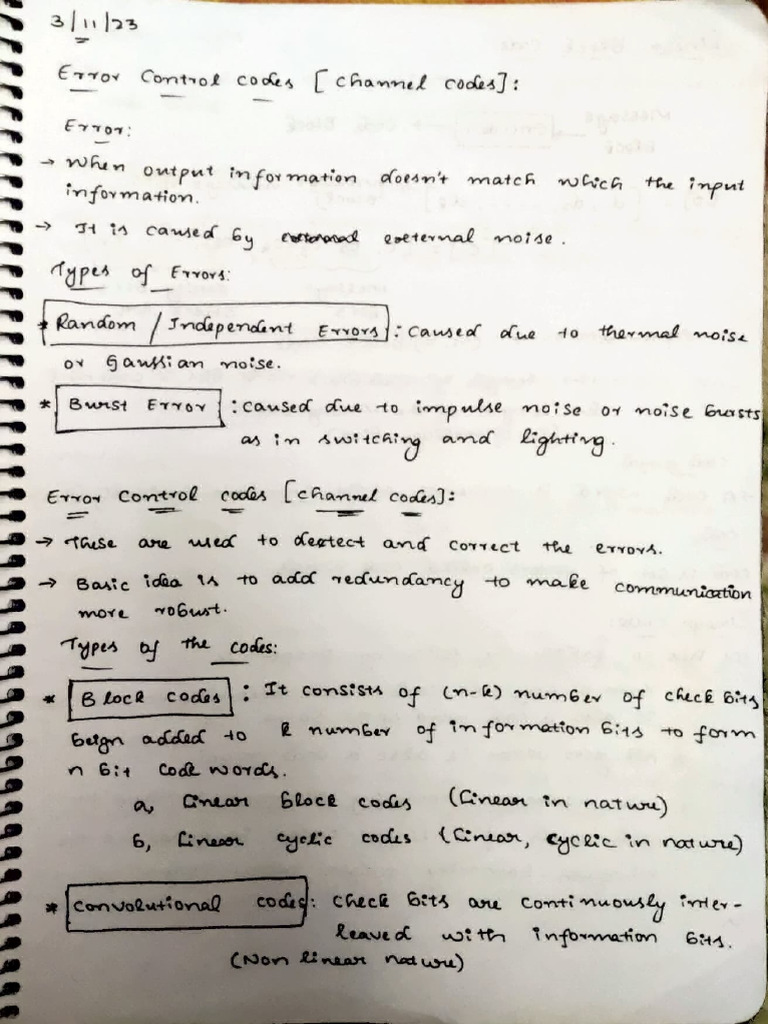 3/11/23
Error Control codes [channel codes]:
Error:
→ When output information doesn't match which the input
information.
→ It is caused by external noise.
Types of Errors:
* Random / Independent Errors : caused due to thermal noise
or Gaussian noise.
* Burst Error : caused due to impulse noise or noise bursts
as in switching and lighting.
Error control codes [channel codes]:
→ These are used to detect and correct the errors.
→ Basic idea is to add redundancy to make communication
more robust.
Types of the codes:
* Block codes : It consists of (n-k) number of check bits
beign added to k number of information bits to form
n bit code words.
a, Linear block codes (Linear in nature)
b, Linear cyclic codes (Linear, cyclic in nature)
* convolutional codes: check bits are continuously inter-
leaved with information bits.
(Non linear nature)